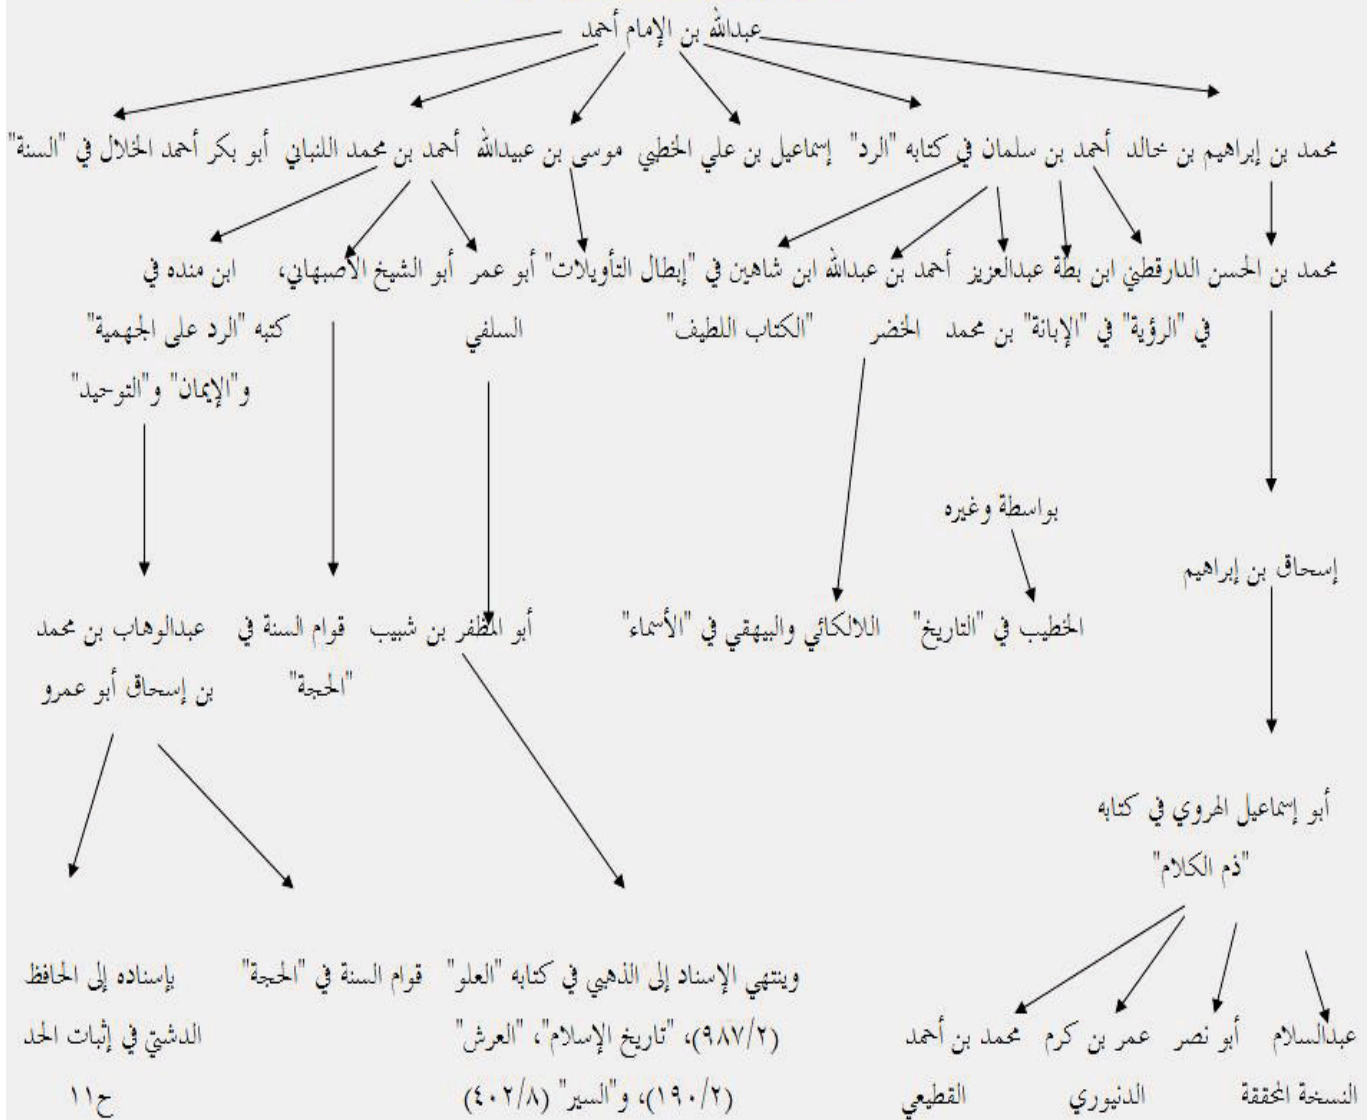 عبدالله بن الإمام أحمد
محمد بن إبراهيم بن خالد أحمد بن سلمان في كتابه "الرد" إسماعيل بن علي الخطبي موسى بن عبيدالله أحمد بن محمد اللنباني أبو بكر أحمد الخلال في "السنة"
محمد بن الحسن الدارقطني ابن بطة عبدالعزيز أحمد بن عبدالله ابن شاهين في "إبطال التأويلات" أبو عمر أبو الشيخ الأصبهاني، ابن منده في
في "الرؤية" في "الإبانة" بن محمد الخضر "الكتاب اللطيف" السلفي كتبه "الرد على الجهمية"
و"الإيمان" و"التوحيد"
بواسطة وغيره
إسحاق بن إبراهيم
الخطيب في "التاريخ" اللالكائي والبيهقي في "الأسماء" أبو المظفر بن شبيب قوام السنة في عبدالوهاب بن محمد
"الحجة" بن إسحاق أبو عمرو
أبو إسماعيل الهروي في كتابه
"ذم الكلام"
وينتهي الإسناد إلى الذهبي في كتابه "العلو" قوام السنة في "الحجة" بإسناده إلى الحافظ
عبدالسلام أبو نصر عمر بن كرم محمد بن أحمد (٩٨٧/٢)، "تاريخ الإسلام"، "العرش" الدشتي في إثبات الحد
النسخة المحققة الدنيوري القطيعي (١٩٠/٢)، و"السير" (٤٠٢/٨) ح١١